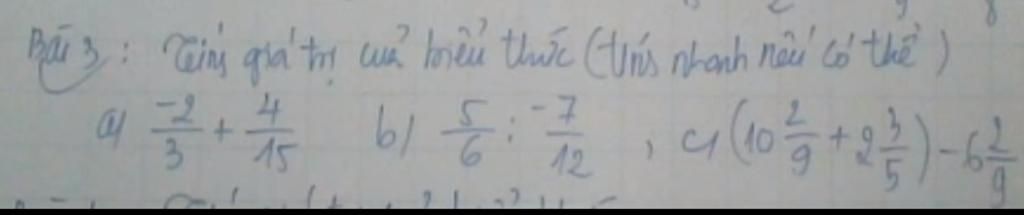 Bài 3: Tính giá trị của biểu thức (tính nhanh nếu có thể)
a) -2/3 + 4/15 b) 5/6 : -7/12, c) (10 2/9 + 2 3/5) - 6 2/9